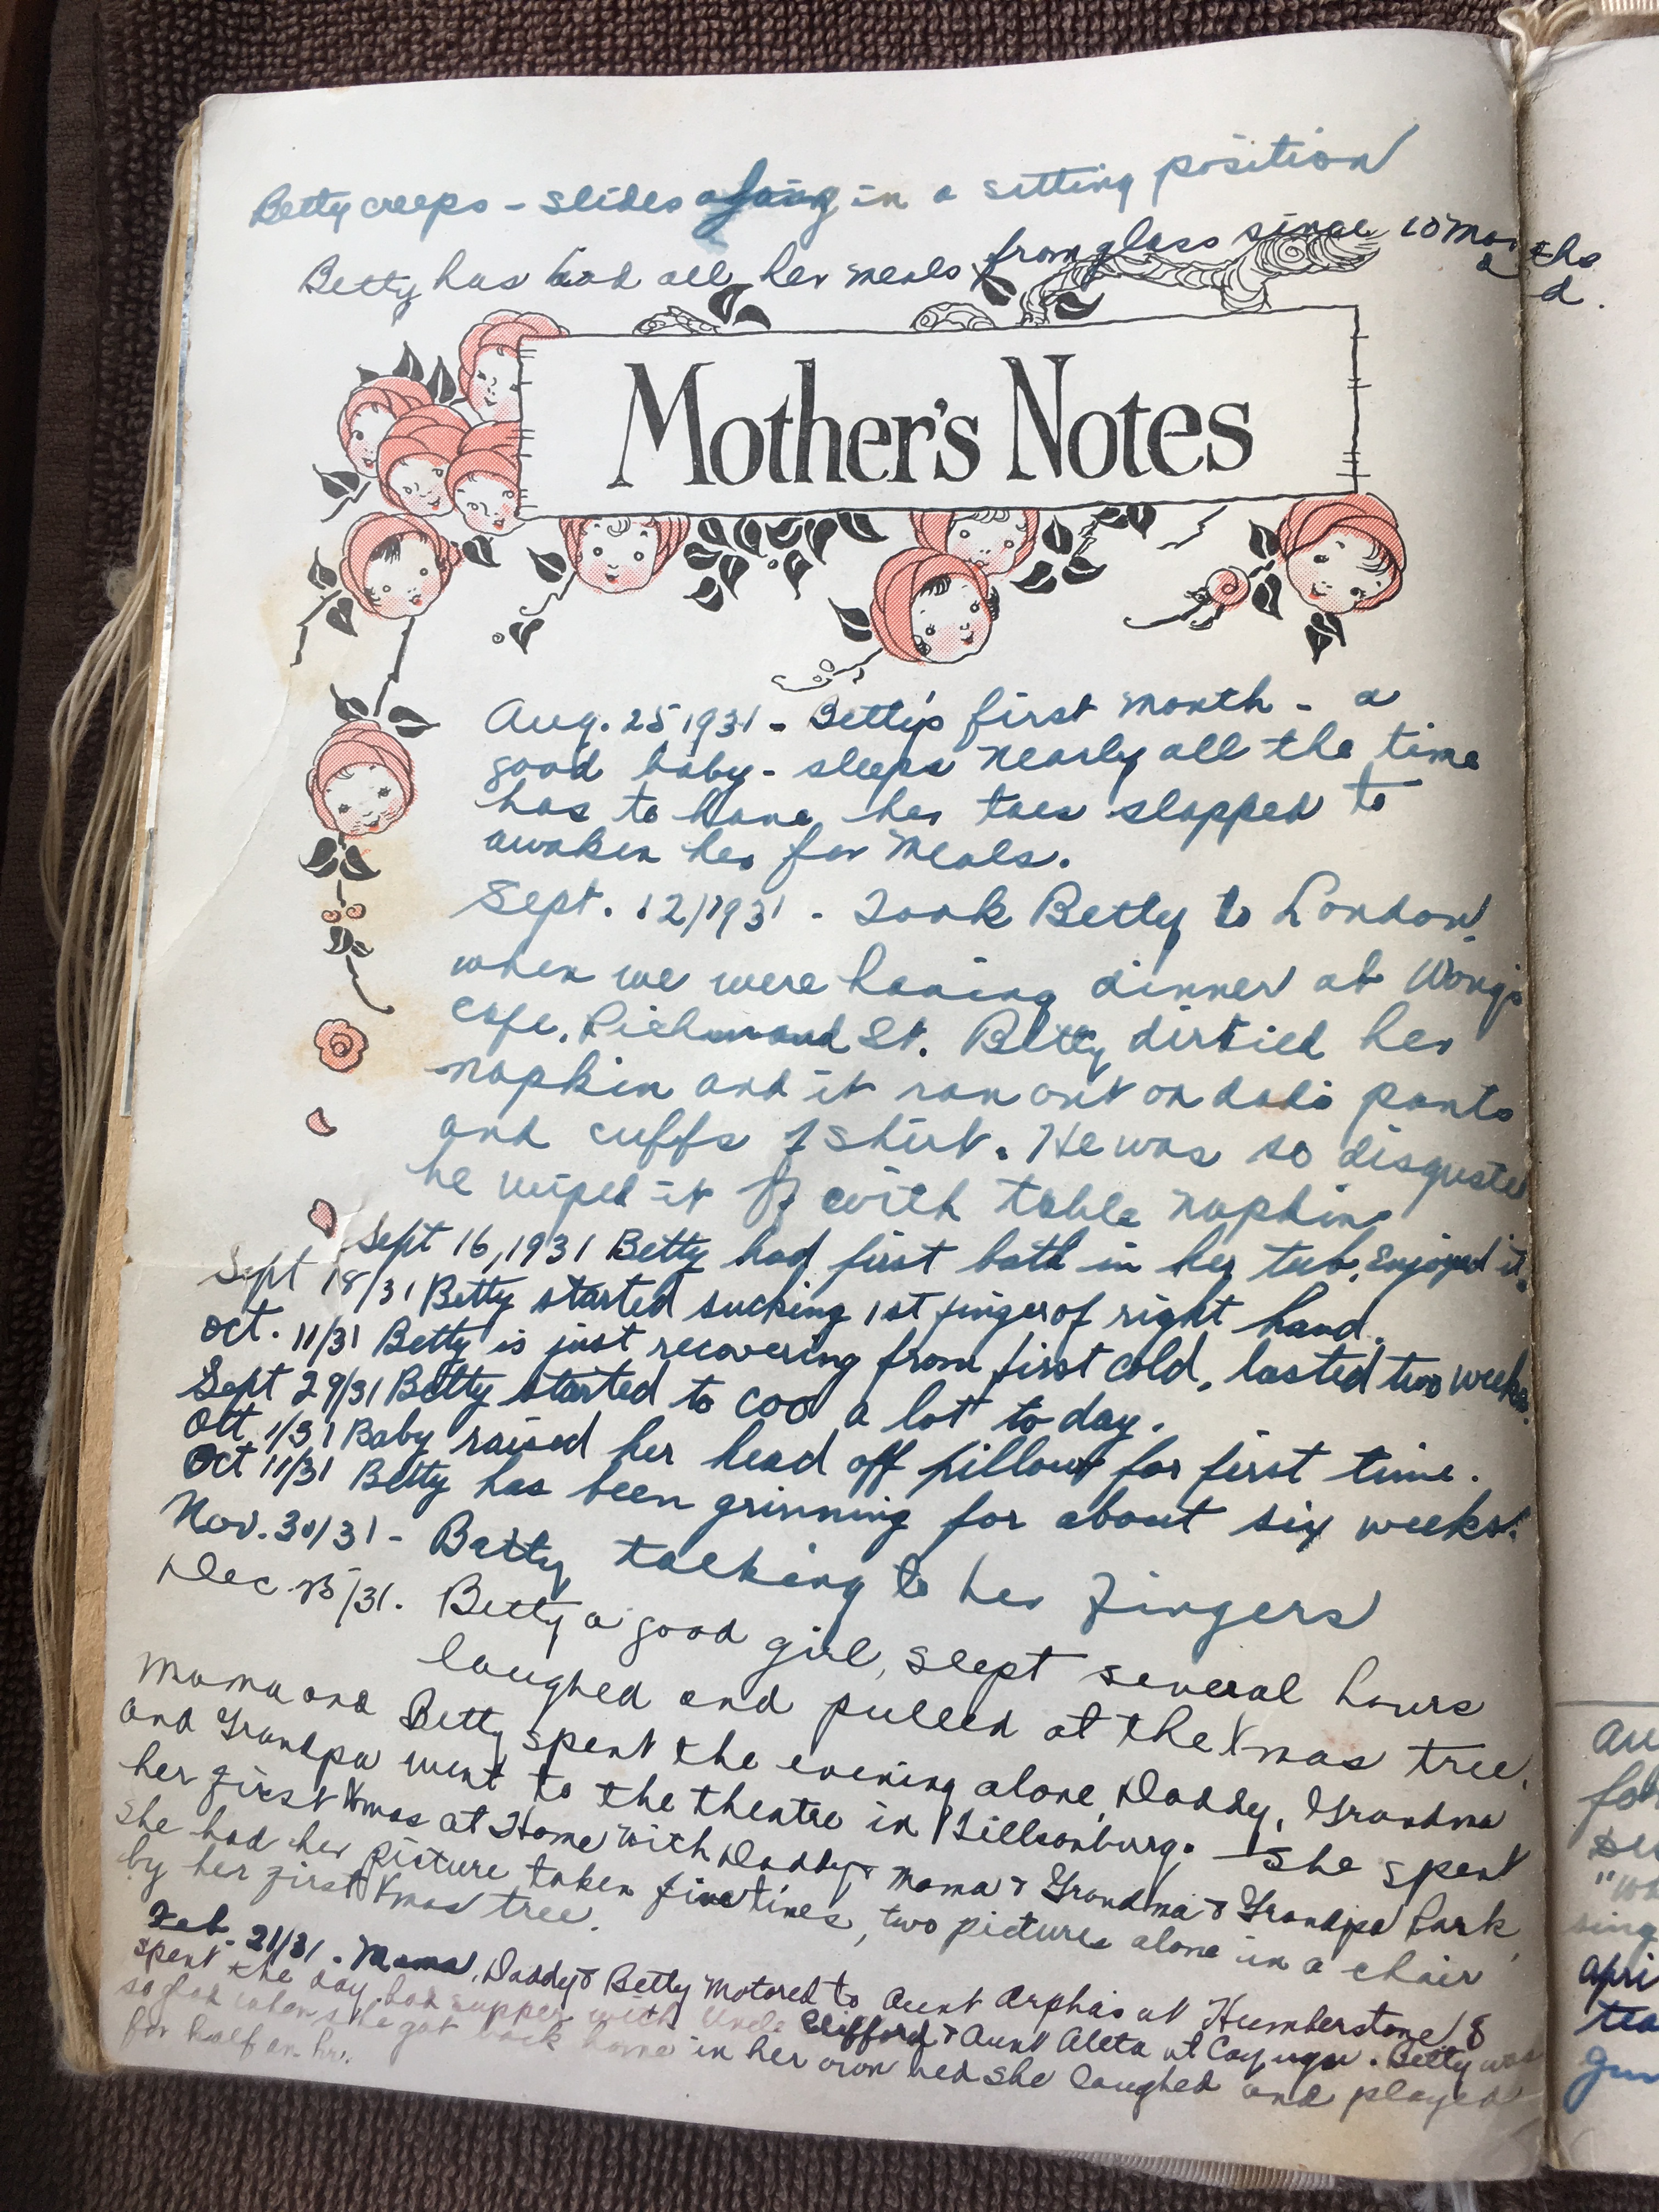 Betty creeps - slides along in a sitting position
Betty has had all her meals from glass since 10 months
Mother's Notes
Aug. 25 1931 - Betty's first month - a
good baby - sleeps nearly all the time
has to have her toes slapped to
awaken her for meals.
Sept. 12/1931 - Took Betty to London,
when we were having dinner at Wong's
cafe, Richmond St. Betty dirtied her
napkin and it ran out on dad's pants
and cuffs of shirt. He was so disgusted
he wiped it off with table napkin.
Sept 16, 1931 Betty had first bath in her tub, Enjoyed it.
Sept 18/31 Betty started sucking 1st finger of right hand.
Oct. 11/31 Betty is just recovering from first cold, lasted two weeks.
Sept 29/31 Betty started to coo a lot to day.
Oct 1/31 Baby raised her head off pillow for first time.
Oct 11/31 Betty has been grinning for about six weeks.
Nov. 30/31 - Betty talking to her fingers
Dec 25/31. Betty a good girl, slept several hours
laughed and pulled at the Xmas tree.
Mama and Betty spent the evening alone, Daddy, Grandma
and Grandpa went to the theatre in Tillsonburg. She spent
her first Xmas at Home with Daddy & Mama & Grandma & Grandpa Park,
She had her picture taken five times, two pictures alone in a chair
by her first Xmas tree.
Feb. 21/31. Mama, Daddy & Betty Motored to Aunt Orpha's at Humberstone &
spent the day, had supper with Uncle Clifford & Aunt Aleta at Cayuga. Betty was
so glad when she got back home in her own bed she laughed and played
for half an hr.